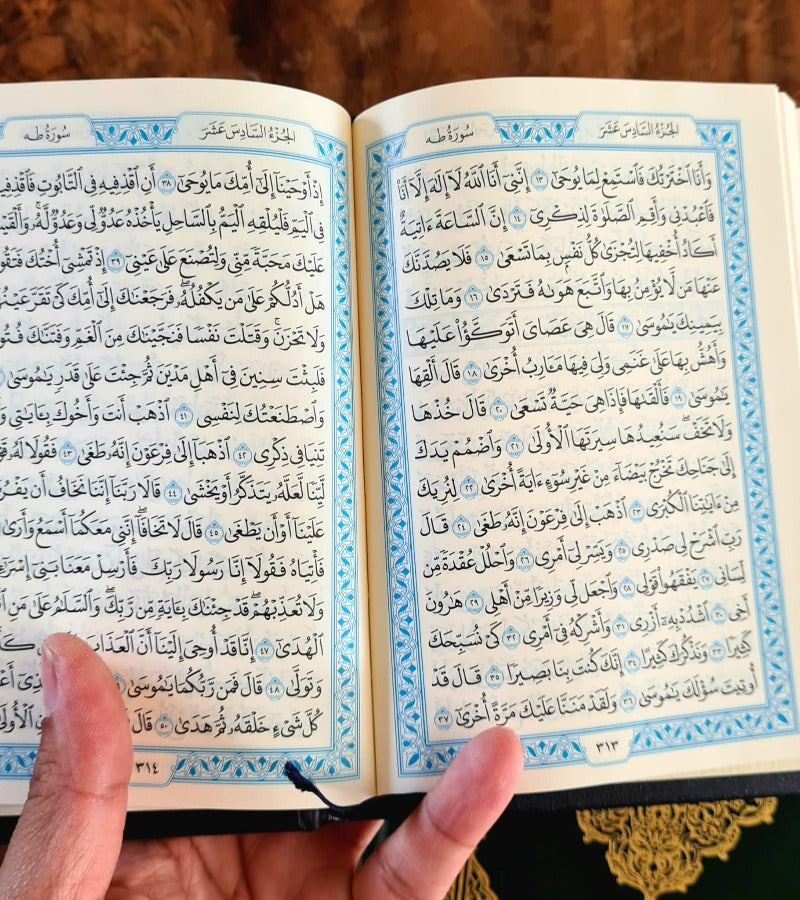 الجُزْءُ السَّادِسَ عَشَرَ
سُورَةُ طه
وَأَنَا ٱخْتَرْتُكَ فَٱسْتَمِعْ لِمَا يُوحَىٰٓ ١٣ إِنَّنِىٓ أَنَا ٱللَّهُ لَآ إِلَٰهَ إِلَّآ أَنَا۠
فَٱعْبُدْنِى وَأَقِمِ ٱلصَّلَوٰةَ لِذِكْرِىٓ ١٤ إِنَّ ٱلسَّاعَةَ ءَاتِيَةٌ
أَكَادُ أُخْفِيهَا لِتُجْزَىٰ كُلُّ نَفْسٍۭ بِمَا تَسْعَىٰ ١٥ فَلَا يَصُدَّنَّكَ
عَنْهَا مَن لَّا يُؤْمِنُ بِهَا وَٱتَّبَعَ هَوَىٰهُ فَتَرْدَىٰ ١٦ وَمَا تِلْكَ
بِيَمِينِكَ يَٰمُوسَىٰ ١٧ قَالَ هِىَ عَصَاىَ أَتَوَكَّؤُا۟ عَلَيْهَا
وَأَهُشُّ بِهَا عَلَىٰ غَنَمِى وَلِىَ فِيهَا مَـَٔارِبُ أُخْرَىٰ ١٨ قَالَ أَلْقِهَا
يَٰمُوسَىٰ ١٩ فَأَلْقَىٰهَا فَإِذَا هِىَ حَيَّةٌ تَسْعَىٰ ٢٠ قَالَ خُذْهَا
وَلَا تَخَفْ ۖ سَنُعِيدُهَا سِيرَتَهَا ٱلْأُولَىٰ ٢١ وَٱضْمُمْ يَدَكَ
إِلَىٰ جَنَاحِكَ تَخْرُجْ بَيْضَآءَ مِنْ غَيْرِ سُوٓءٍ ءَايَةً أُخْرَىٰ ٢٢ لِنُرِيَكَ
مِنْ ءَايَٰتِنَا ٱلْكُبْرَى ٢٣ ٱذْهَبْ إِلَىٰ فِرْعَوْنَ إِنَّهُۥ طَغَىٰ ٢٤ قَالَ
رَبِّ ٱشْرَحْ لِى صَدْرِى ٢٥ وَيَسِّرْ لِىٓ أَمْرِى ٢٦ وَٱحْلُلْ عُقْدَةً مِّن
لِّسَانِى ٢٧ يَفْقَهُوا۟ قَوْلِى ٢٨ وَٱجْعَل لِّى وَزِيرًا مِّنْ أَهْلِى ٢٩ هَٰرُونَ
أَخِى ٣٠ ٱشْدُدْ بِهِۦٓ أَزْرِى ٣١ وَأَشْرِكْهُ فِىٓ أَمْرِى ٣٢ كَىْ نُسَبِّحَكَ
كَثِيرًا ٣٣ وَنَذْكُرَكَ كَثِيرًا ٣٤ إِنَّكَ كُنتَ بِنَا بَصِيرًا ٣٥ قَالَ قَدْ
أُوتِيتَ سُؤْلَكَ يَٰمُوسَىٰ ٣٦ وَلَقَدْ مَنَنَّا عَلَيْكَ مَرَّةً أُخْرَىٰٓ ٣٧
٣١٣
الجُزْءُ السَّادِسَ عَشَرَ
سُورَةُ طه
إِذْ أَوْحَيْنَآ إِلَىٰٓ أُمِّكَ مَا يُوحَىٰٓ ٣٨ أَنِ ٱقْذِفِيهِ فِى ٱلتَّابُوتِ فَٱقْذِفِيهِ
فِى ٱلْيَمِّ فَلْيُلْقِهِ ٱلْيَمُّ بِٱلسَّاحِلِ يَأْخُذْهُ عَدُوٌّ لِّى وَعَدُوٌّ لَّهُۥ ۚ وَأَلْقَيْتُ
عَلَيْكَ مَحَبَّةً مِّنِّى وَلِتُصْنَعَ عَلَىٰ عَيْنِىٓ ٣٩ إِذْ تَمْشِىٓ أُخْتُكَ فَتَقُولُ
هَلْ أَدُلُّكُمْ عَلَىٰ مَن يَكْفُلُهُۥ ۖ فَرَجَعْنَٰكَ إِلَىٰٓ أُمِّكَ كَىْ تَقَرَّ عَيْنُهَا
وَلَا تَحْزَنَ ۚ وَقَتَلْتَ نَفْسًا فَنَجَّيْنَٰكَ مِنَ ٱلْغَمِّ وَفَتَنَّٰكَ
فَلَبِثْتَ سِنِينَ فِىٓ أَهْلِ مَدْيَنَ ثُمَّ جِئْتَ عَلَىٰ قَدَرٍ يَٰمُوسَىٰ
وَٱصْطَنَعْتُكَ لِنَفْسِى ٤١ ٱذْهَبْ أَنتَ وَأَخُوكَ بِـَٔايَٰتِى
تَنِيَا فِى ذِكْرِى ٤٢ ٱذْهَبَآ إِلَىٰ فِرْعَوْنَ إِنَّهُۥ طَغَىٰ ٤٣ فَقُولَا لَهُۥ
لَّيِّنًا لَّعَلَّهُۥ يَتَذَكَّرُ أَوْ يَخْشَىٰ ٤٤ قَالَا رَبَّنَآ إِنَّنَا نَخَافُ أَن يَفْرُطَ
عَلَيْنَآ أَوْ أَن يَطْغَىٰ ٤٥ قَالَ لَا تَخَافَآ ۖ إِنَّنِى مَعَكُمَآ أَسْمَعُ وَأَرَىٰ
فَأْتِيَاهُ فَقُولَآ إِنَّا رَسُولَا رَبِّكَ فَأَرْسِلْ مَعَنَا بَنِىٓ
وَلَا تُعَذِّبْهُمْ ۖ قَدْ جِئْنَٰكَ بِـَٔايَةٍ مِّن رَّبِّكَ ۖ وَٱلسَّلَٰمُ عَلَىٰ مَنِ
ٱلْهُدَىٰٓ ٤٧ إِنَّا قَدْ أُوحِىَ إِلَيْنَآ أَنَّ ٱلْعَذَابَ
وَتَوَلَّىٰ ٤٨ قَالَ فَمَن رَّبُّكُمَا يَٰمُوسَىٰ
كُلَّ شَىْءٍ خَلْقَهُۥ ثُمَّ هَدَىٰ ٥٠ قَالَ
٣١٤